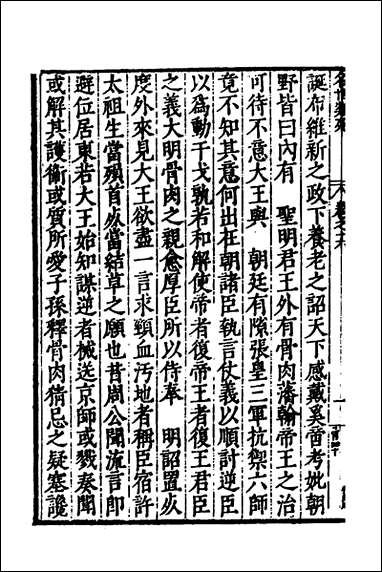 誕布維新之政下養老之詔天下感戴奚啻考妣朝
野皆曰內有　聖明君王外有骨肉藩翰帝王之治
可待不意大王與　朝廷有隙張皇三軍抗禦六師
竟不知其意何出在朝諸臣執言仗義以順計逆臣
以為動干戈孰若和解使帝者復帝王者復王君臣
之義大明骨肉之親愈厚臣所以侍奉　明詔置死
度外來見大王欲盡一言求頸血汚地者稱臣宿許
太祖生當殞首死當結草之願也昔周公聞流言即
避位居東若大王始知謀逆者械送京師或戮奏聞
或解其護衛或質所愛子孫釋骨肉猜忌之疑塞讒